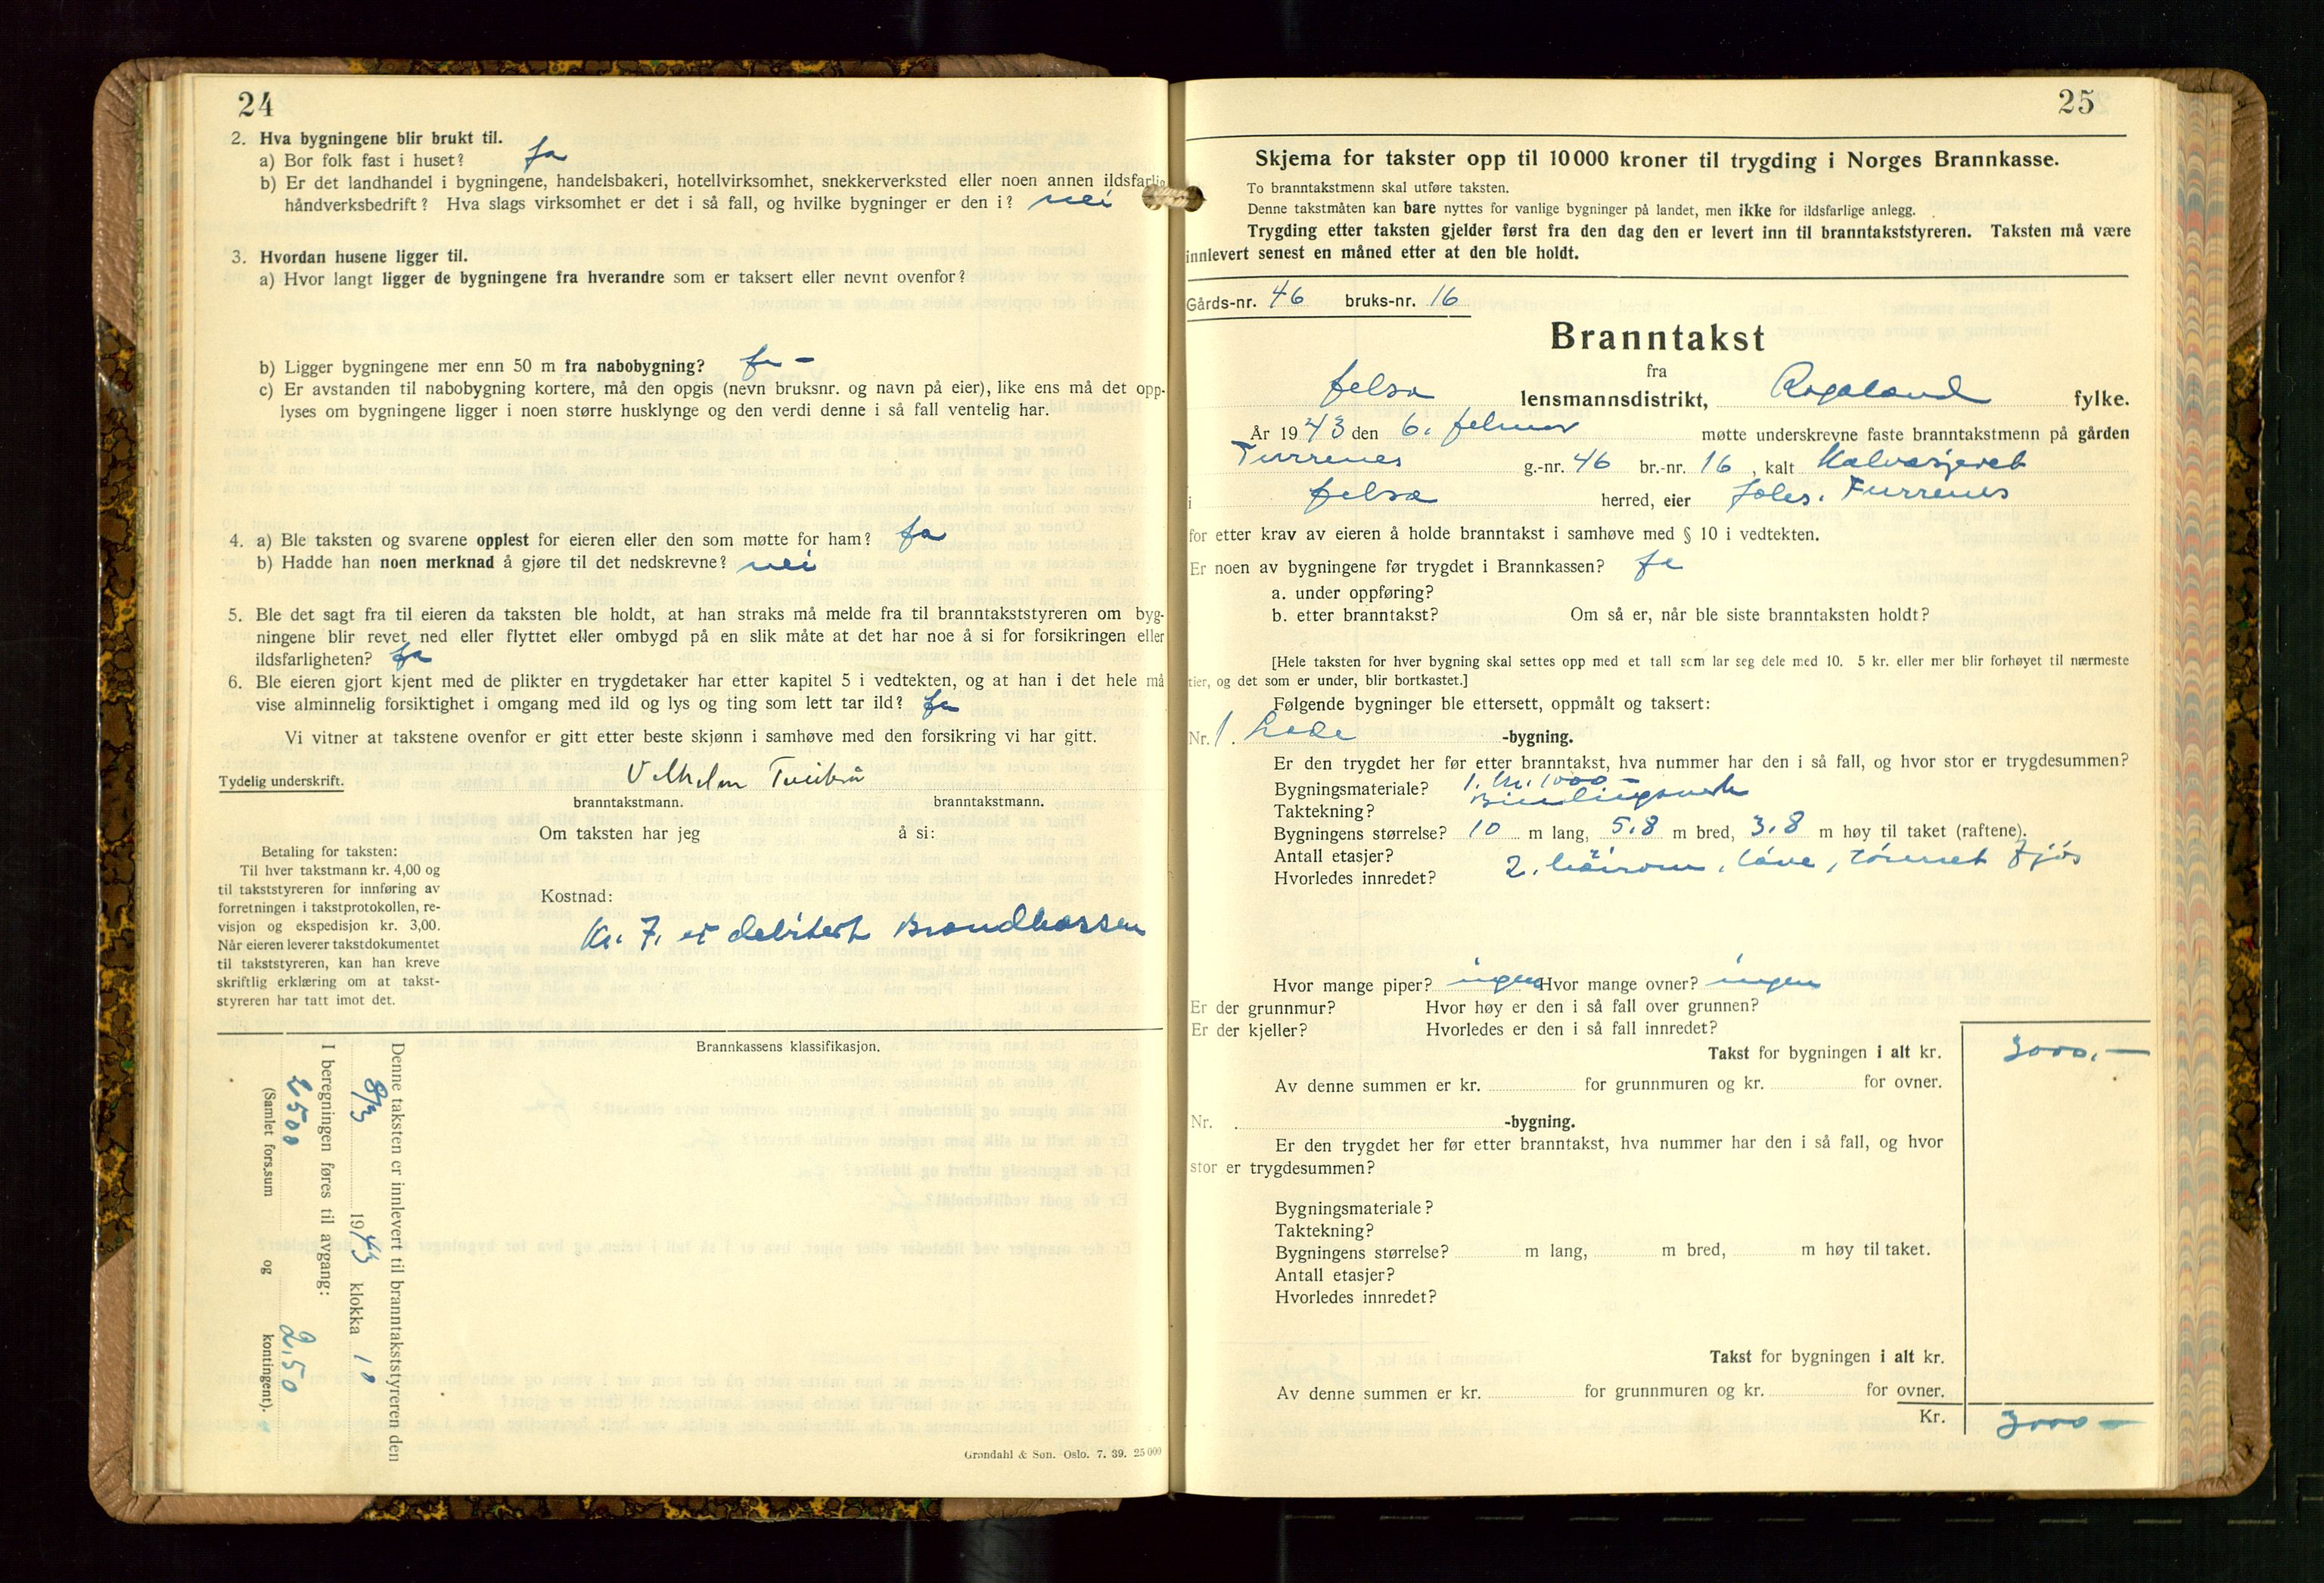 24
2. Hva bygningene blir brukt til.
a) Bor folk fast i huset? ja
b) Er det landhandel i bygningene, handelsbakeri, hotellvirksomhet, snekkerverksted eller noen annen ildsfarlig
håndverksbedrift? Hva slags virksomhet er det i så fall, og hvilke bygninger er den i? nei
3. Hvordan husene ligger til.
a) Hvor langt ligger de bygningene fra hverandre som er taksert eller nevnt ovenfor?
b) Ligger bygningene mer enn 50 m fra nabobygning? ja –
c) Er avstanden til nabobygning kortere, må den opgis (nevn bruksnr. og navn på eier), like ens må det opp-
lyses om bygningene ligger i noen større husklynge og den verdi denne i så fall ventelig har.
4. a) Ble taksten og svarene opplest for eieren eller den som møtte for ham? ja
b) Hadde han noen merknad å gjøre til det nedskrevne? nei
5. Ble det sagt fra til eieren da taksten ble holdt, at han straks må melde fra til branntakststyreren om byg-
ningene blir revet ned eller flyttet eller ombygd på en slik måte at det har noe å si for forsikringen eller
ildsfarligheten? ja
6. Ble eieren gjort kjent med de plikter en trygdetaker har etter kapitel 5 i vedtekten, og at han i det hele må
vise alminnelig forsiktighet i omgang med ild og lys og ting som lett tar ild? ja
Vi vitner at takstene ovenfor er gitt etter beste skjønn i samhøve med den forsikring vi har gitt.
Tydelig underskrift.
Vilhelm
branntakstmann. branntakstmann.
Om taksten har jeg å si:
Betaling for taksten:
Til hver takstmann kr. 4,00 og
til takststyreren for innføring av
forretningen i takstprotokollen, re-
visjon og ekspedisjon kr. 3,00.
Når eieren leverer takstdokumentet
til takststyreren, kan han kreve
skriftlig erklæring om at takst-
styreren har tatt imot det.
Kostnad:
Kr. 7, er debitert Brandkassen
Brannkassens klassifikasjon.
Denne taksten er innlevert til branntakststyreren den
8/3 1943 klokka 10
I beregningen føres til avgang:
2500 2,50
(Samlet fors.sum og kontingent).
Grøndahl & Søn. Oslo. 7. 39. 25 000
25
Skjema for takster opp til 10 000 kroner til trygding i Norges Brannkasse.
To branntakstmenn skal utføre taksten.
Denne takstmåten kan bare nyttes for vanlige bygninger på landet, men ikke for ildsfarlige anlegg.
Trygding etter taksten gjelder først fra den dag den er levert inn til branntakststyreren. Taksten må være
innlevert senest en måned etter at den ble holdt.
Gårds-nr. 46 bruks-nr. 16
Branntakst
fra
Jelsa lensmannsdistrikt, Rogaland fylke.
År 1943 den 6. februar møtte underskrevne faste branntakstmenn på gården
Furrenes g.-nr. 46 br.-nr. 16, kalt
i Jelsa herred, eier Furrenes
for etter krav av eieren å holde branntakst i samhøve med § 10 i vedtekten.
Er noen av bygningene før trygdet i Brannkassen? ja
a. under oppføring?
b. etter branntakst? Om så er, når ble siste branntaksten holdt?
[Hele taksten for hver bygning skal settes opp med et tall som lar seg dele med 10. 5 kr. eller mer blir forhøyet til nærmeste
tier, og det som er under, blir bortkastet.]
Følgende bygninger ble ettersett, oppmålt og taksert:
Nr. 1. Løde -bygning.
Er den trygdet her før etter branntakst, hva nummer har den i så fall, og hvor stor er trygdesummen?
1. kr. 1000 –
Bygningsmateriale? Bindingsverk
Taktekning?
Bygningens størrelse? 10 m lang, 5,8 m bred, 3,8 m høy til taket (raftene).
Antall etasjer?
Hvorledes innredet? 2 høirom, låve, tømret fjös
Hvor mange piper? ingen Hvor mange ovner? ingen
Er der grunnmur? Hvor høy er den i så fall over grunnen?
Er der kjeller? Hvorledes er den i så fall innredet?
Takst for bygningen i alt kr. 3000,–
Av denne summen er kr. for grunnmuren og kr. for ovner.
Nr. -bygning.
Er den trygdet her før etter branntakst, hva nummer har den i så fall, og hvor
stor er trygdesummen?
Bygningsmateriale?
Taktekning?
Bygningens størrelse? m lang, m bred, m høy til taket.
Antall etasjer?
Hvorledes innredet?
Takst for bygningen i alt kr.
Av denne summen er kr. for grunnmuren og kr. for ovner.
Kr. 3000 –